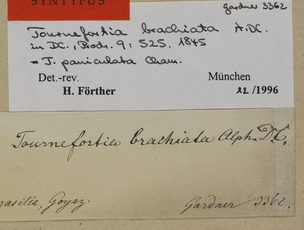 SYNTYPUS
gardner 3362
Tournefortia brachiata A.DC.
in DC., Prodr. 9: 525. 1845
= T. paniculata Cham.
Det.-rev. München
H. Förther 22/1996
Tournefortia brachiata Alph. DC.
rasilia, Goyaz. Gardner 3362.